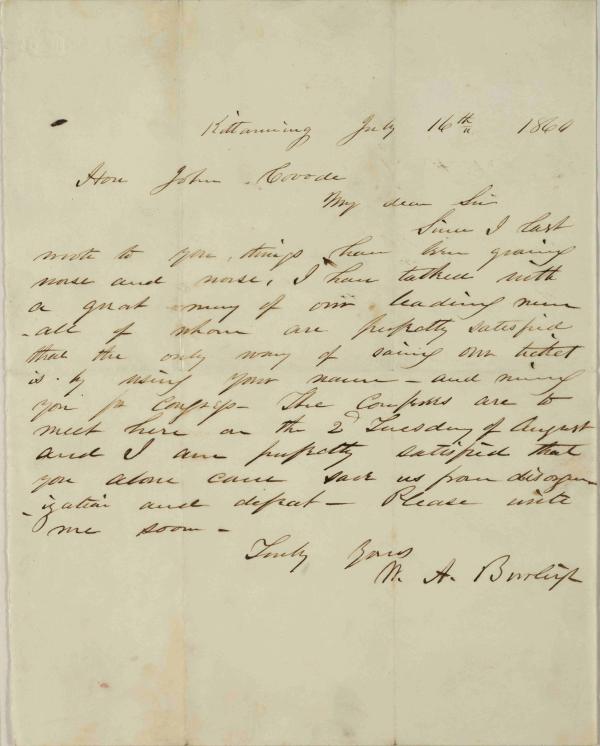 Kittanning July 16th 1860
Hon John Covode
My dear Sir
Since I last
wrote to you, things have been going
worse and worse, I have talked with
a great many of our leading men
- all of whom are perfectly satisfied
that the only way of saving our ticket
is by using your name - and running
you for Congress - The Conferees are to
meet here on the 2d Tuesday of August
and I am perfectly satisfied that
you alone can save us from disorgan
-ization and defeat - Please write
me soon -
Truly Yours
W. A.